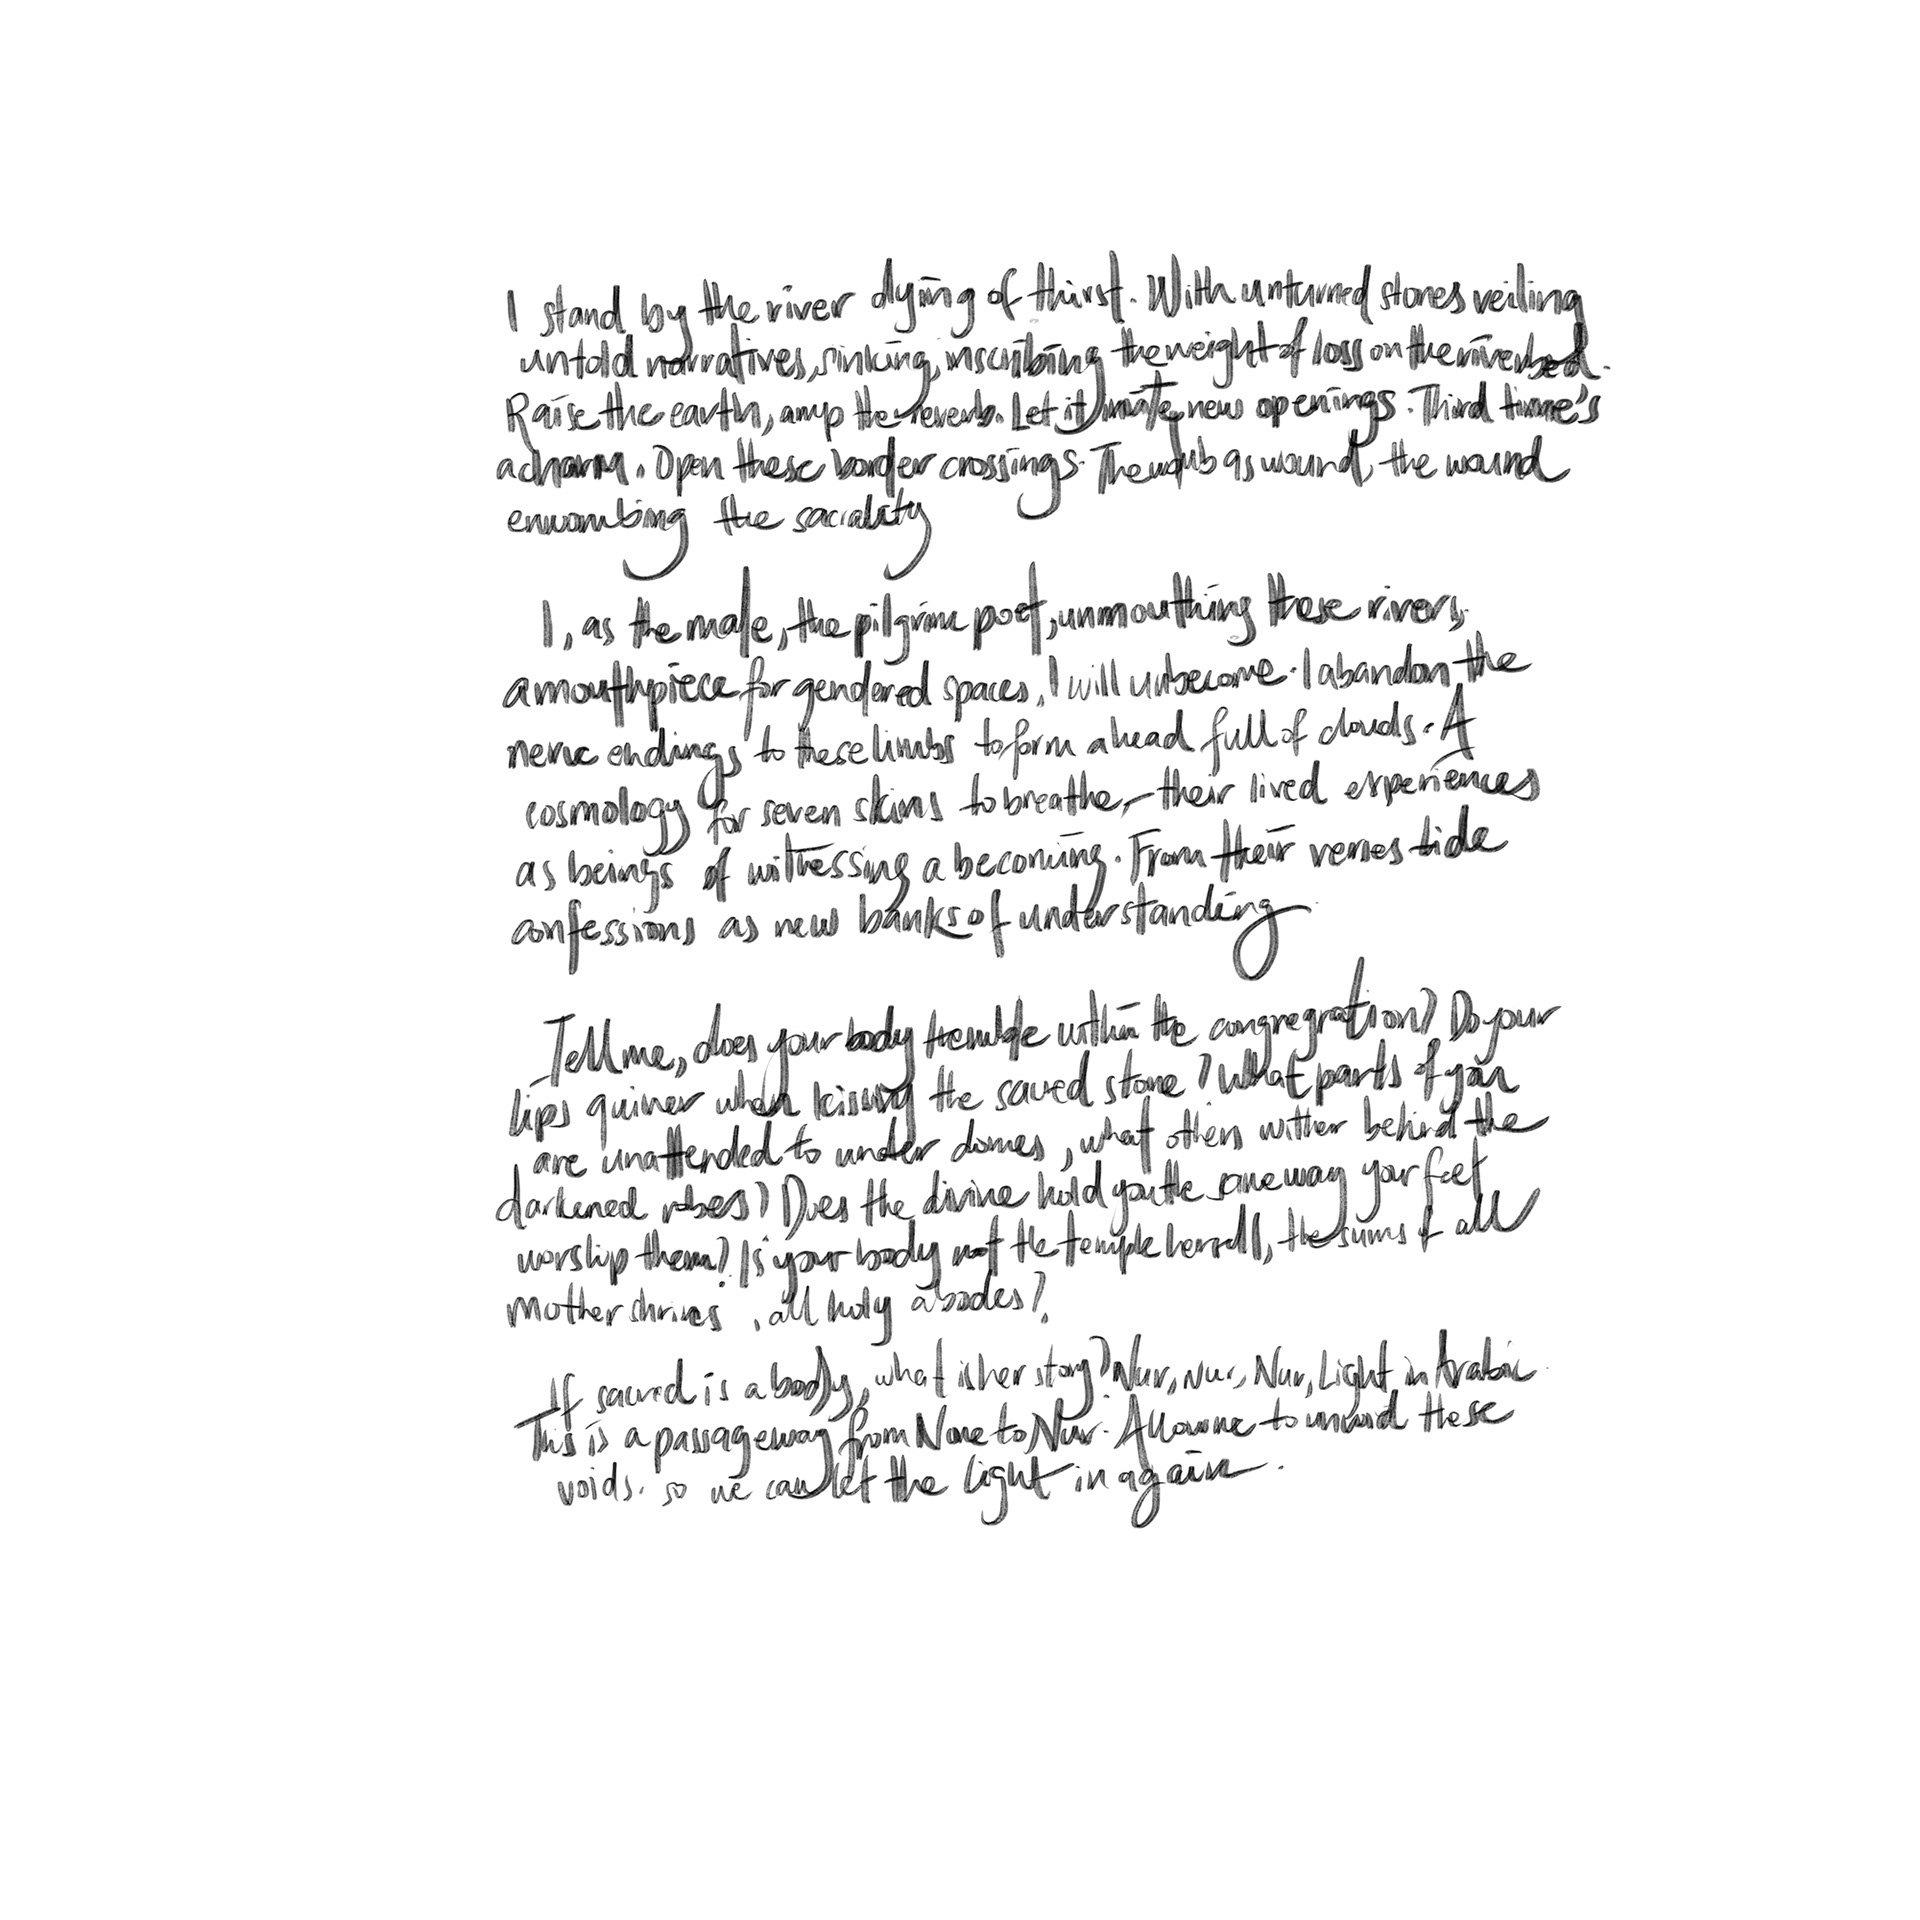 I stand by the river dying of thirst. With unturned stones veiling
untold narratives, sinking, inscribing the weight of loss on the riverbed.
Raise the earth, amp the reverb. Let it invite new openings. Third time's
a charm. Open these border crossings. The womb as wound, the wound
enwombing the sacrality
I, as the male, the pilgrim poet, unmouthing these rivers,
a mouthpiece for gendered spaces, I will unbecome. I abandon the
nerve endings to these limbs to form a head full of clouds. A
cosmology for seven skins to breathe, their lived experiences
as beings of witnessing a becoming. From their verses tide
confessions as new banks of understanding
Tell me, does your body tremble within the congregration? Do your
lips quiver when kissing the sacred stone? What parts of you
are unattended to under domes, what others wither behind the
darkened robes? Does the divine hold you the same way your feet
worship them? Is your body not the temple herself, the sums of all
mother shrines, all holy abodes?
If sacred is a body, what is her story? Nur, nur, Nur, Light in Arabic
This is a passageway from None to Nur. Allow me to unvoid these
voids. so we can let the light in again.